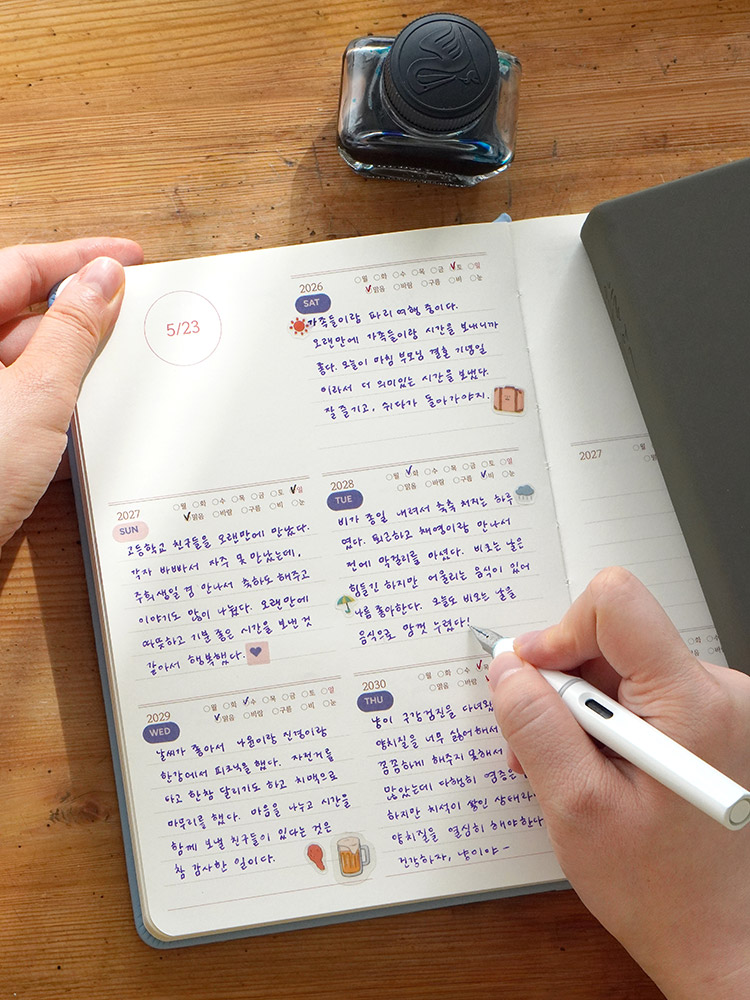 5/23
2026
월 화 수 목 금 토 일
맑음 바람 구름 비 눈
SAT
가족들이랑 파리 여행 중이다.
오랜만에 가족들이랑 시간을 보내니까
좋다. 오늘이 마침 부모님 결혼 기념일
이라서 더 의미있는 시간을 보냈다.
잘 즐기고, 쉬다가 돌아가야지.
2027
월 화 수 목 금 토 일
맑음 바람 구름 비 눈
SUN
고등학교 친구들을 오랜만에 만났다.
각자 바빠서 자주 못 만났는데,
주희생일 겸 만나서 축하도 해주고
이야기도 많이 나눴다. 오랜만에
따뜻하고 기분 좋은 시간을 보낸 것
같아서 행복했다.
2028
월 화 수 목 금 토 일
맑음 바람 구름 비 눈
TUE
비가 종일 내려서 축축 처지는 하루
였다. 퇴근하고 채영이랑 만나서
전에 막걸리를 마셨다. 비오는 날은
힘들긴 하지만 어울리는 음식이 있어
나름 좋아한다. 오늘도 비오는 날을
음식으로 맘껏 누렸다!
2029
월 화 수 목 금 토 일
맑음 바람 구름 비 눈
WED
날씨가 좋아서 나윤이랑 신경이랑
한강에서 피크닉을 했다. 자전거를
타고 한참 달리기도 하고 치맥으로
마무리를 했다. 마음을 나누고 시간을
함께 보낼 친구들이 있다는 것은
참 감사한 일이다.
2030
월 화 수 목
맑음 바람
THU
냥이 구강검진을 다녀왔
양치질을 너무 싫어해서
꼼꼼하게 해주지 못해서
많았는데 다행히 염증은
하지만 치석이 쌓인 상태라
양치질을 열심히 해야한다
건강하자, 냥이야~
2027
월
맑